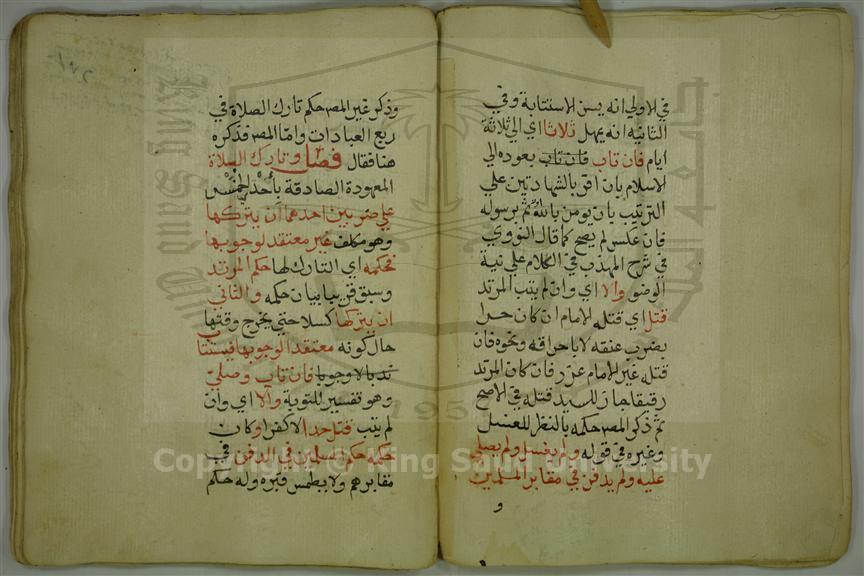 في الاولي انه يسن الاستتابة وفي
الثانيه انه يمهل ثلاثا اي الي ثلاثة
ايام فان تاب فان تاب بعوده الي
الاسلام بان اقر بالشهادتين علي
الترتيب بان يومن بالله ثم برسوله
فان عكس لم يصح كما قال النووي
في شرح المهذب في الكلام علي نية
الوضو والا اي وان لم يتب المرتد
قتل اي قتله الامام ان كان حرا
بضرب عنقه لا باحراقه ونحوه فان
قتله غير الامام عزر فان كان المرتد
رقيقا جاز للسيد قتله في الاصح
ثم ذكر المص حكمه بالنظر للغسل
وغيره في قوله ولم يغسل ولم يصلي
عليه ولم يدفن في مقابر المسلمين
و
وذكر غير المص حكم تارك الصلاة في
ربع العبادات واما المص فذكره
هنا فقال فصل وتارك الصلاة
المعهودة الصادقة بأحد الخمس
علي ضربين احدهما ان يتركها
وهو مكلف غير معتقد لوجوبها
فحكمه اي التارك لها حكم المرتد
وسبق قريبا بيان حكمه والثاني
ان يتركها كسلا حتي يخرج وقتها
حال كونه معتقدا لوجوبها فيستتاب
فان تاب وصلي
وهو تفسير للتوبة والا اي وان
لم يتب قتل حدا لا كفرا وكان
حكمه حكم المسلمين في الدفن في
مقابرهم ولا يطمس قبره وله حكم
Copyright © King Saud University
1957